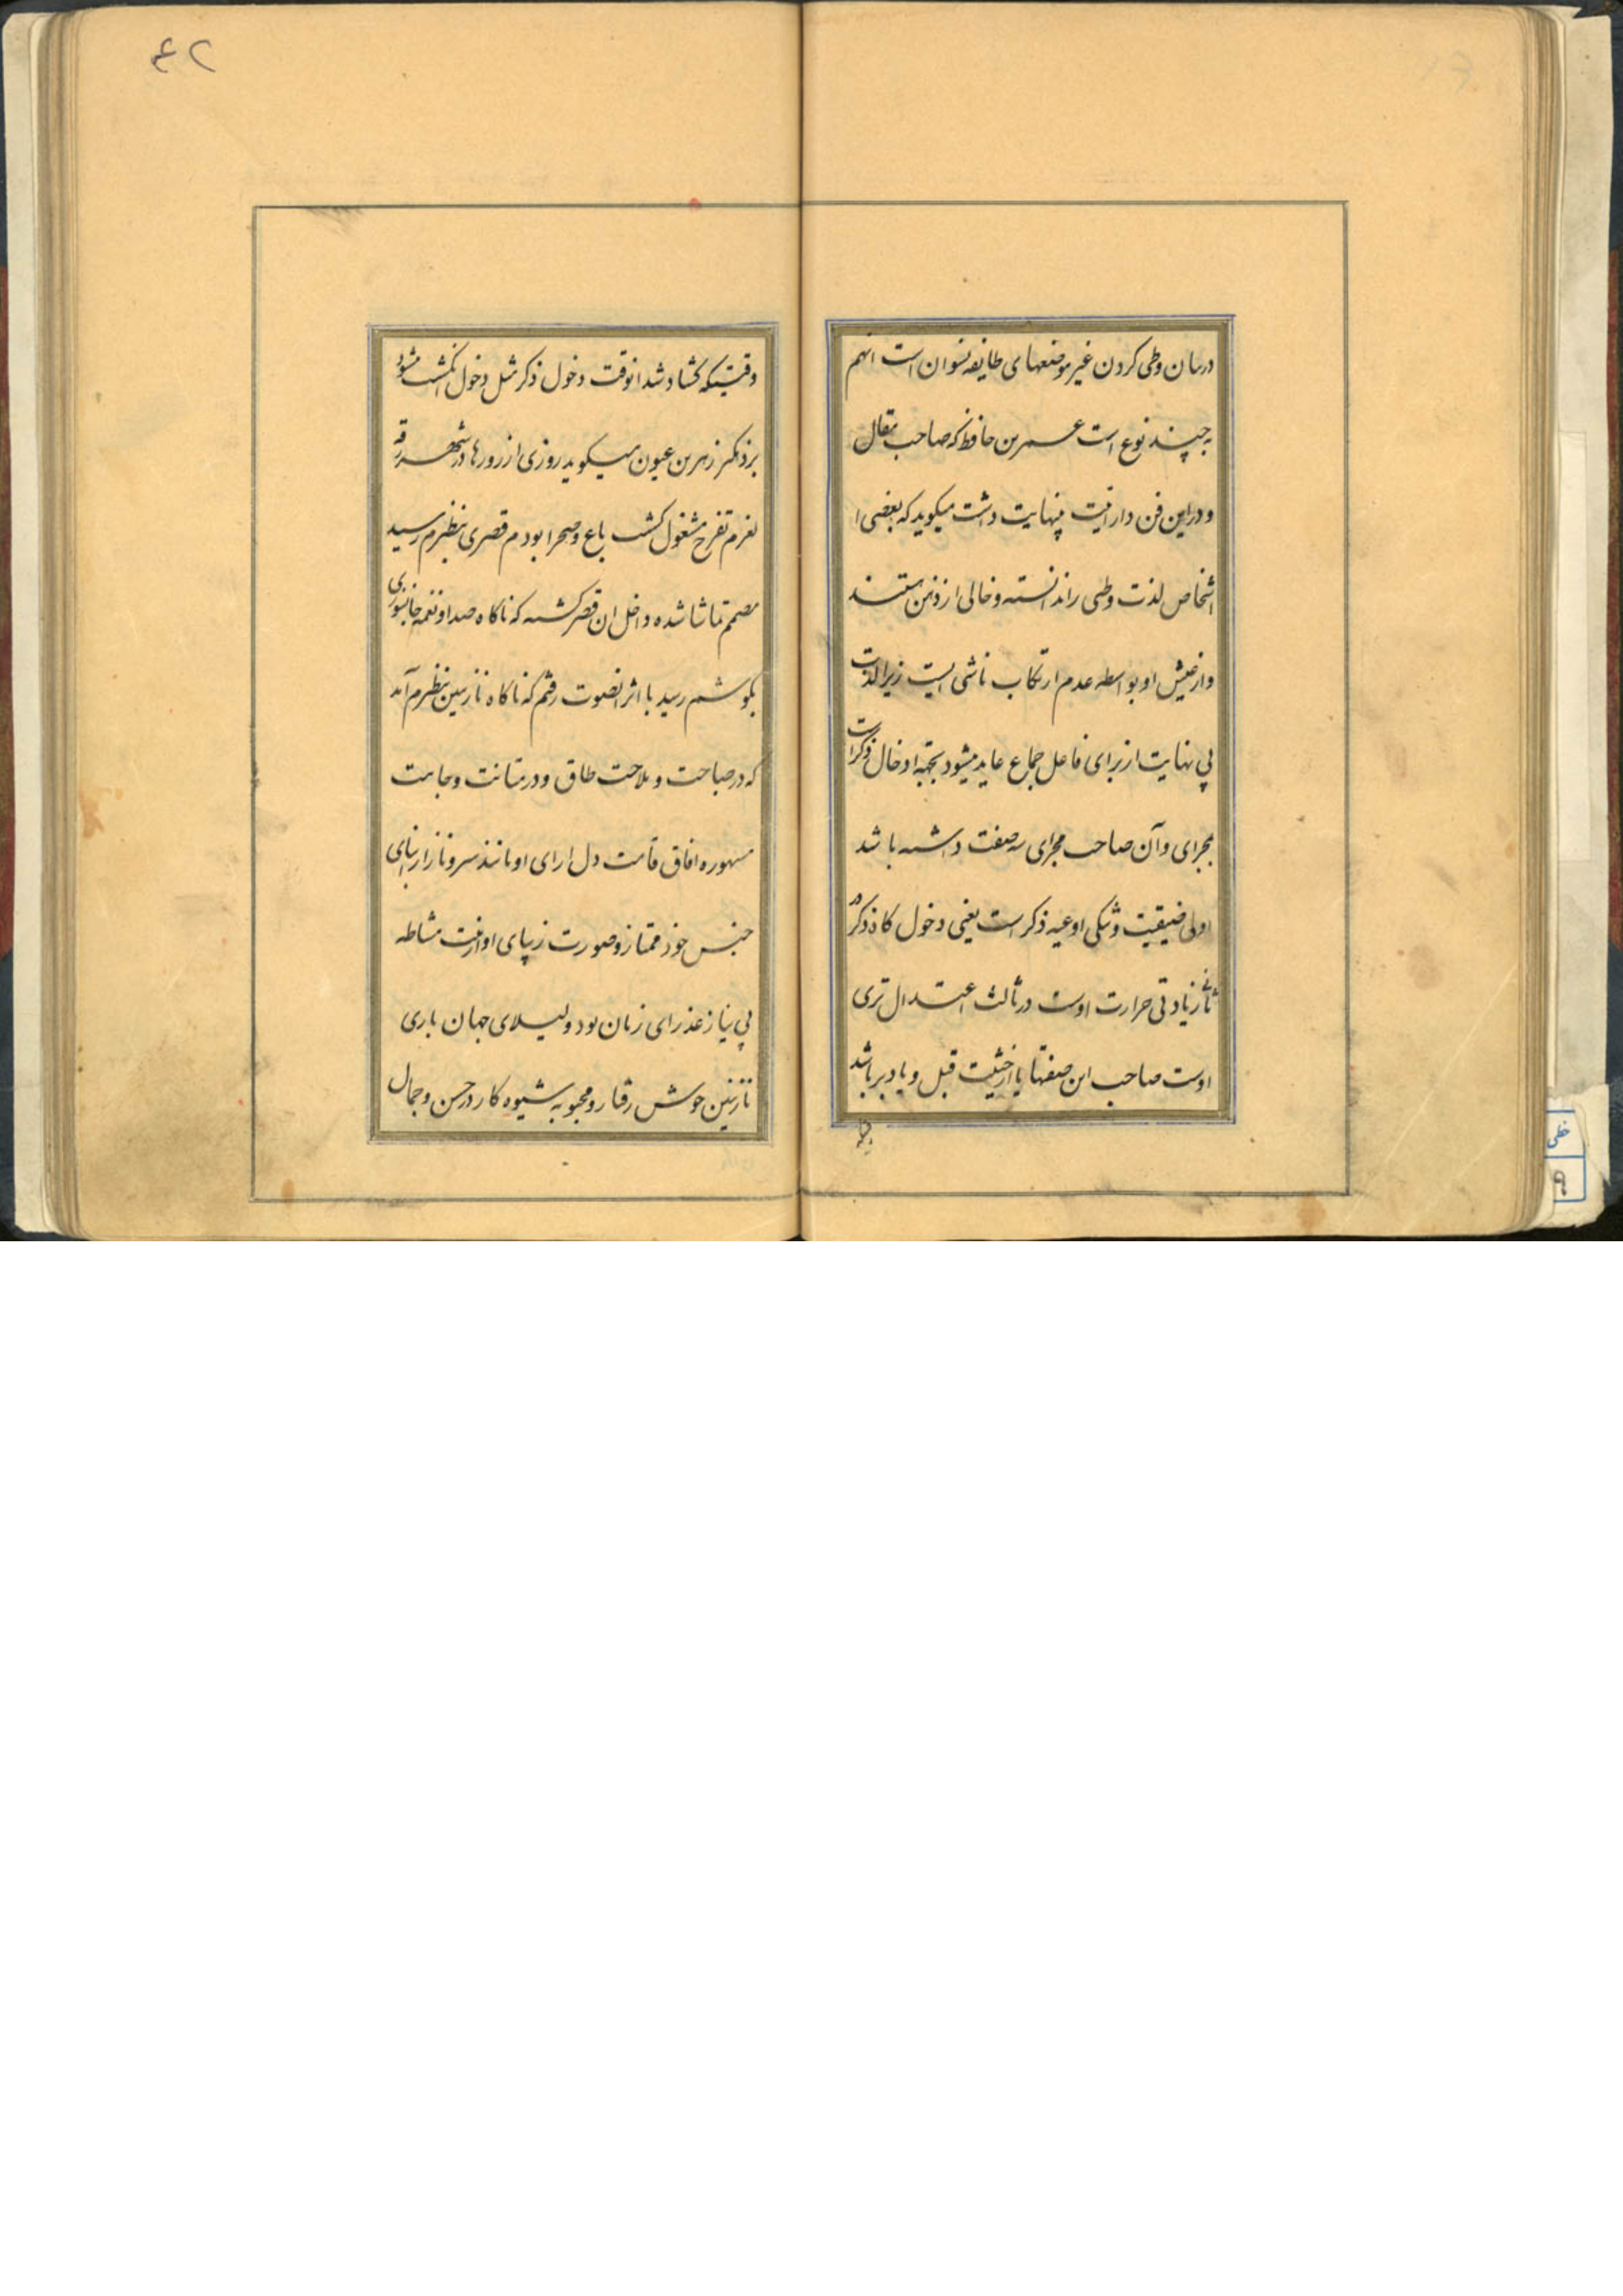 دربیان وطی کردن غیر موضعهای طایفه نسوان است انهم
بچند نوع است عمر بن حافظ که صاحب مقال
و دراین فن دار بینهایت داشت میکوید که بعضی ا
اشخاص لذت وطی را ندانسته و خالی از ذهن هستند
و از عیش او بواسطه عدم ارتکاب ناشی است زیرا لذت
بی نهایت از برای فاعل جماع عاید میشود بجهة ادخال ذکر است
بمجرای و آن صاحب مجرای سه صفت داشته باشد
اولی ضیقیت و تنکی اوعیه ذکر است یعنی دخول کاه ذکر
زیادتی حرارت اوست در ثالث اعتدال تری
اوست صاحب این صفتها یا از قبل و یا دبر باشد
وقتیکه کشاد شد انوقت دخول ذکر مثل دخول انکشت میشود
زهر بن عیون میکوید روزی از روزها در شهر رقه
بعزم تفرح مشغول کشت باغ و صحرا بودم قصری بنظرم رسید
مصمم تماشا شده داخل ان قصر کشته که ناکاه صدا و نغمه جانسوزی
بکوشم رسید با اثر انصوت رفتم که ناکاه نازنین بنظرم آمد
که در صباحت و ملاحت طاق و در متانت وجاهت
مشهوره افاق قامت دل ارای او مانند سرو ناز از ابنای
جنس خود ممتاز و صورت زیبای او از مشاطه
بی نیاز عذرای زمان بود و لیلای جهان باری
نازنین خوش رفتار و محبوبه شیوه کار در حسن و جمال
خطی
۹